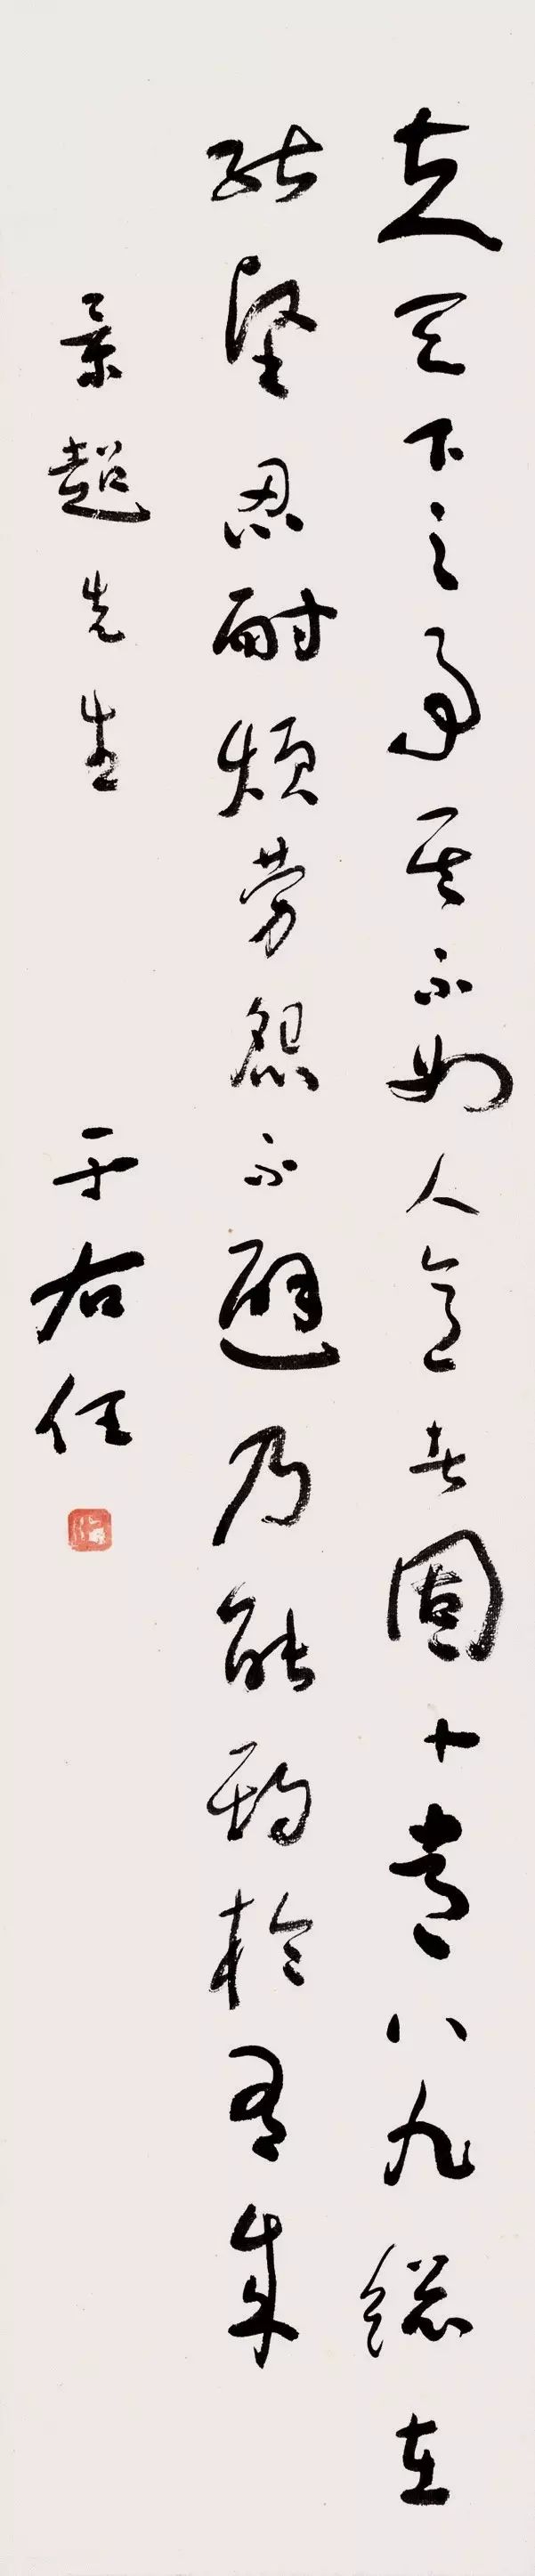 夫天下之事其不如人意者固十常八九總在
能堅忍耐煩勞怨不避乃能期於有成
景超先生 于右任